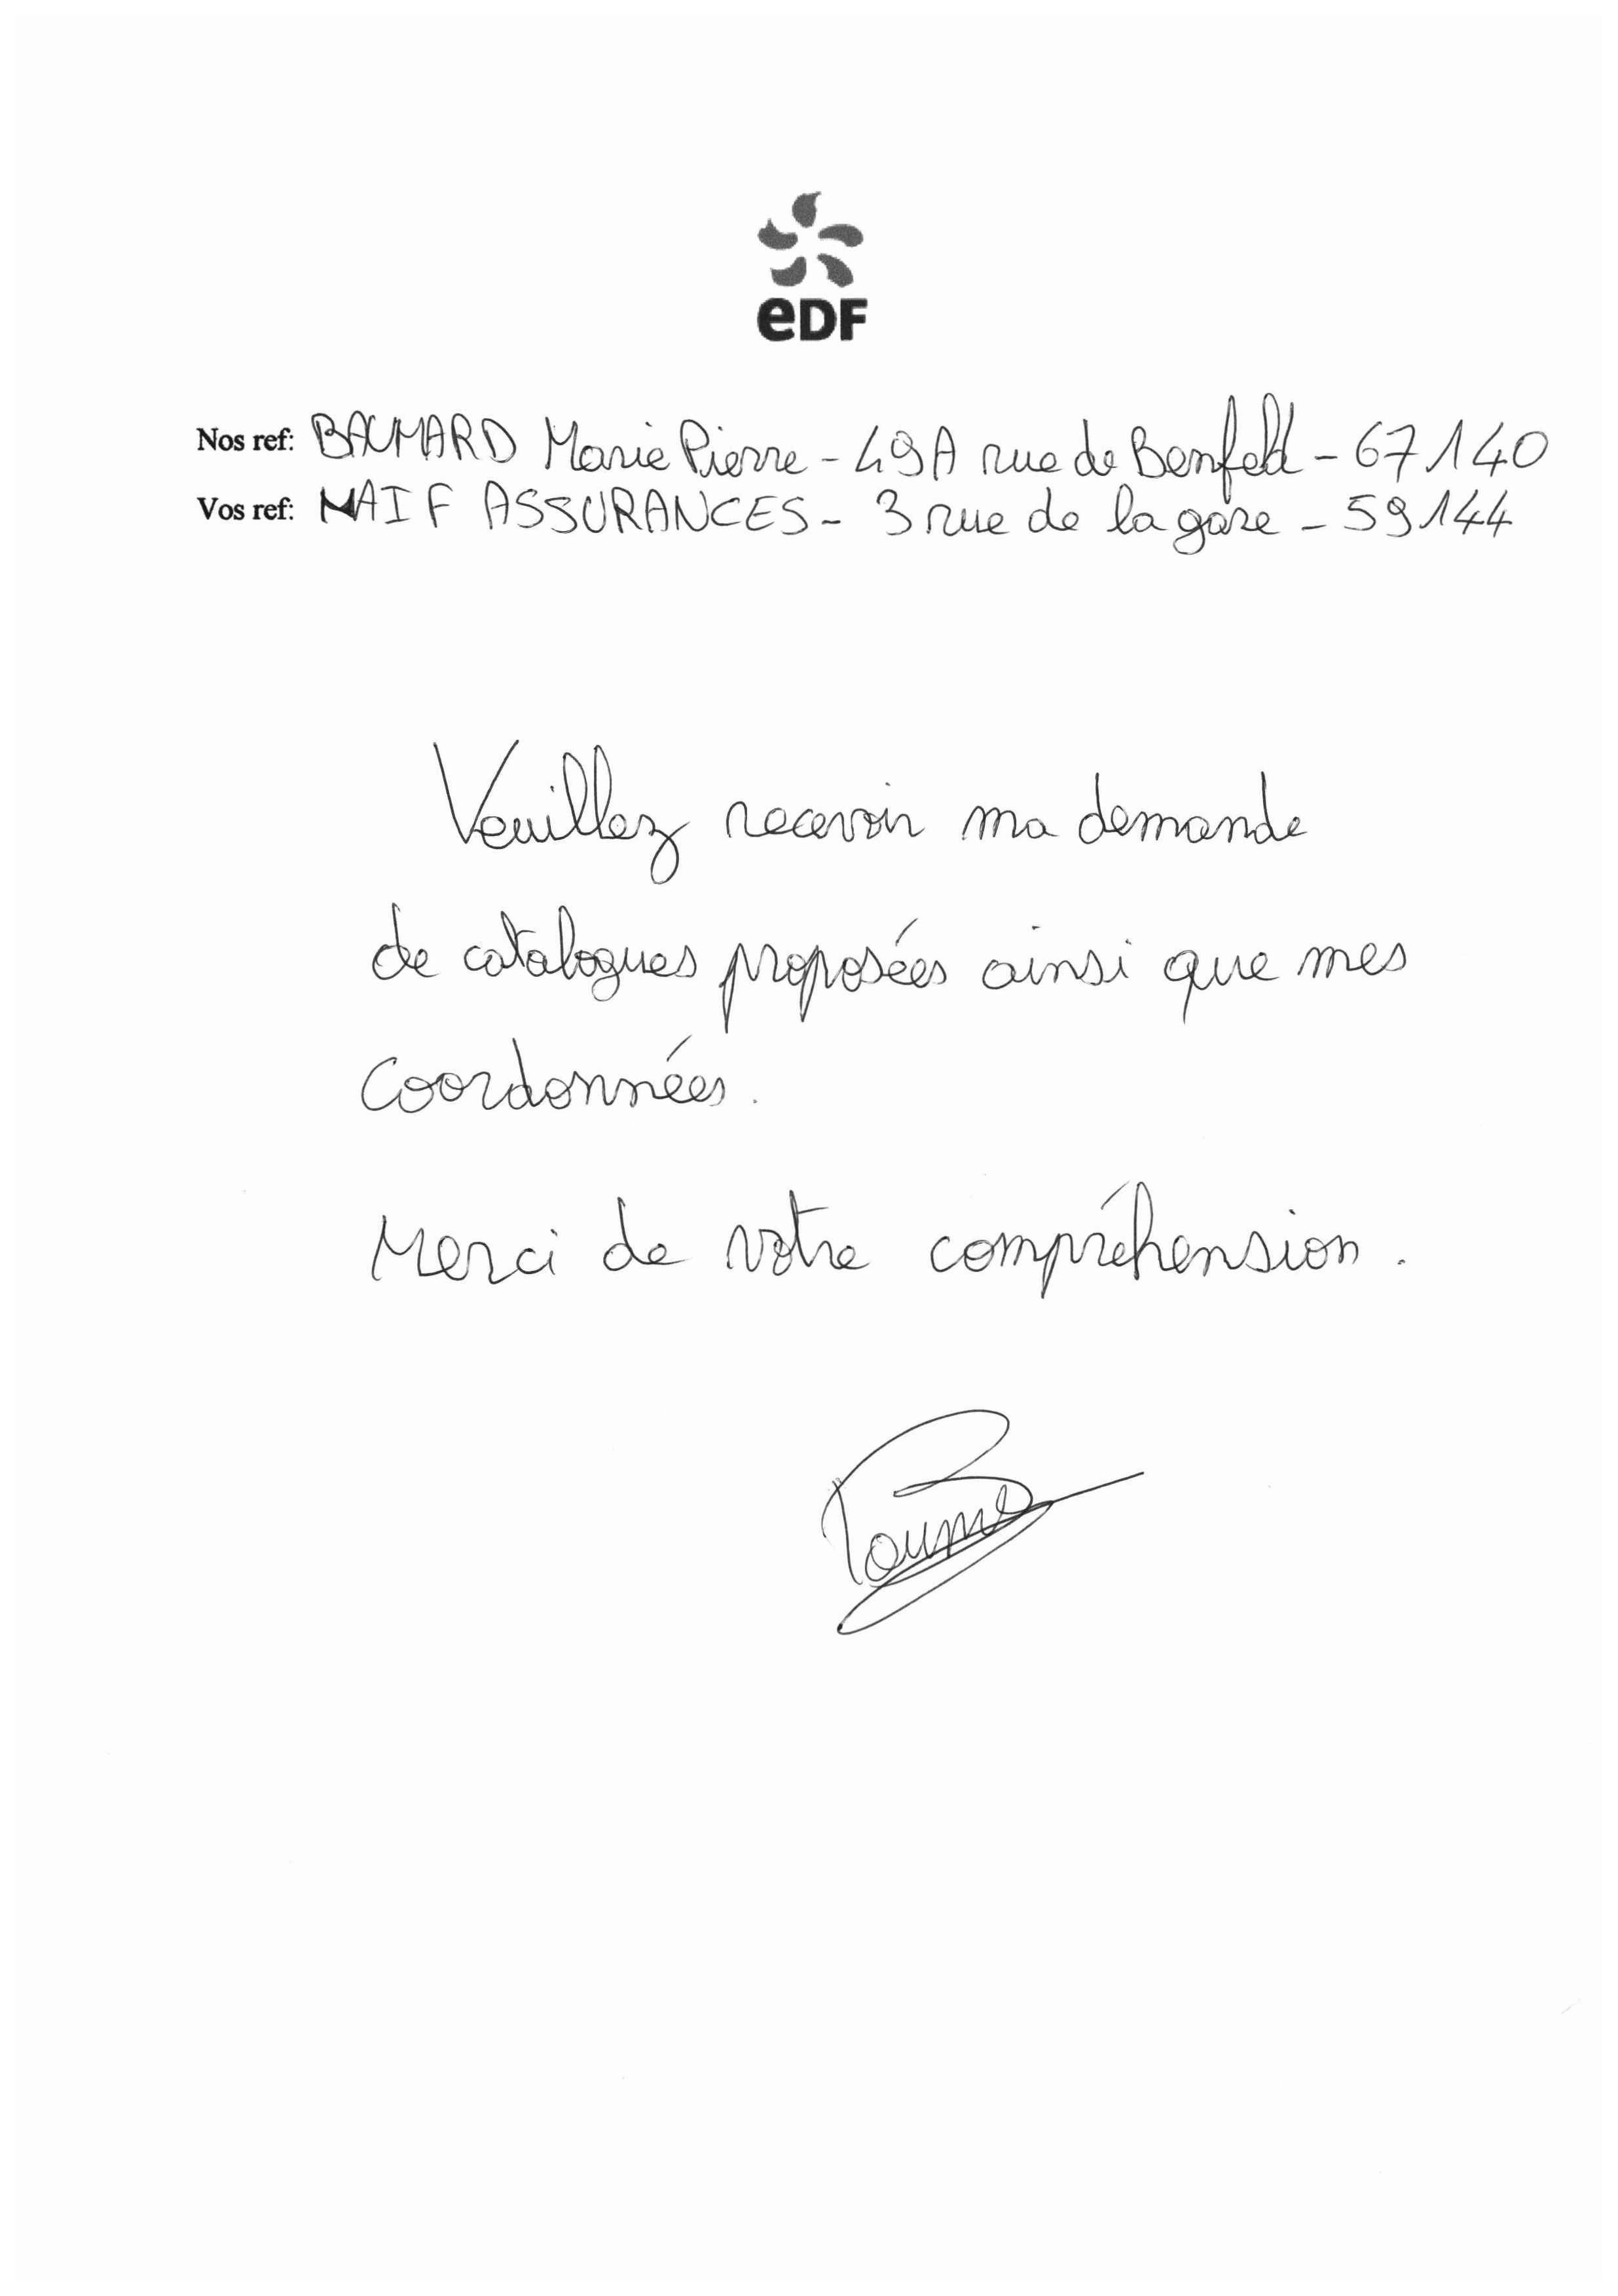 eDF
Nos ref: BAUMARD Marie Pierre - 49A rue de Benfeld - 67140
Vos ref: MAIF ASSURANCES - 3 rue de la gare - 59144
Veuillez recevoir ma demande
de catalogues proposées ainsi que mes
coordonnées.
Merci de votre compréhension.